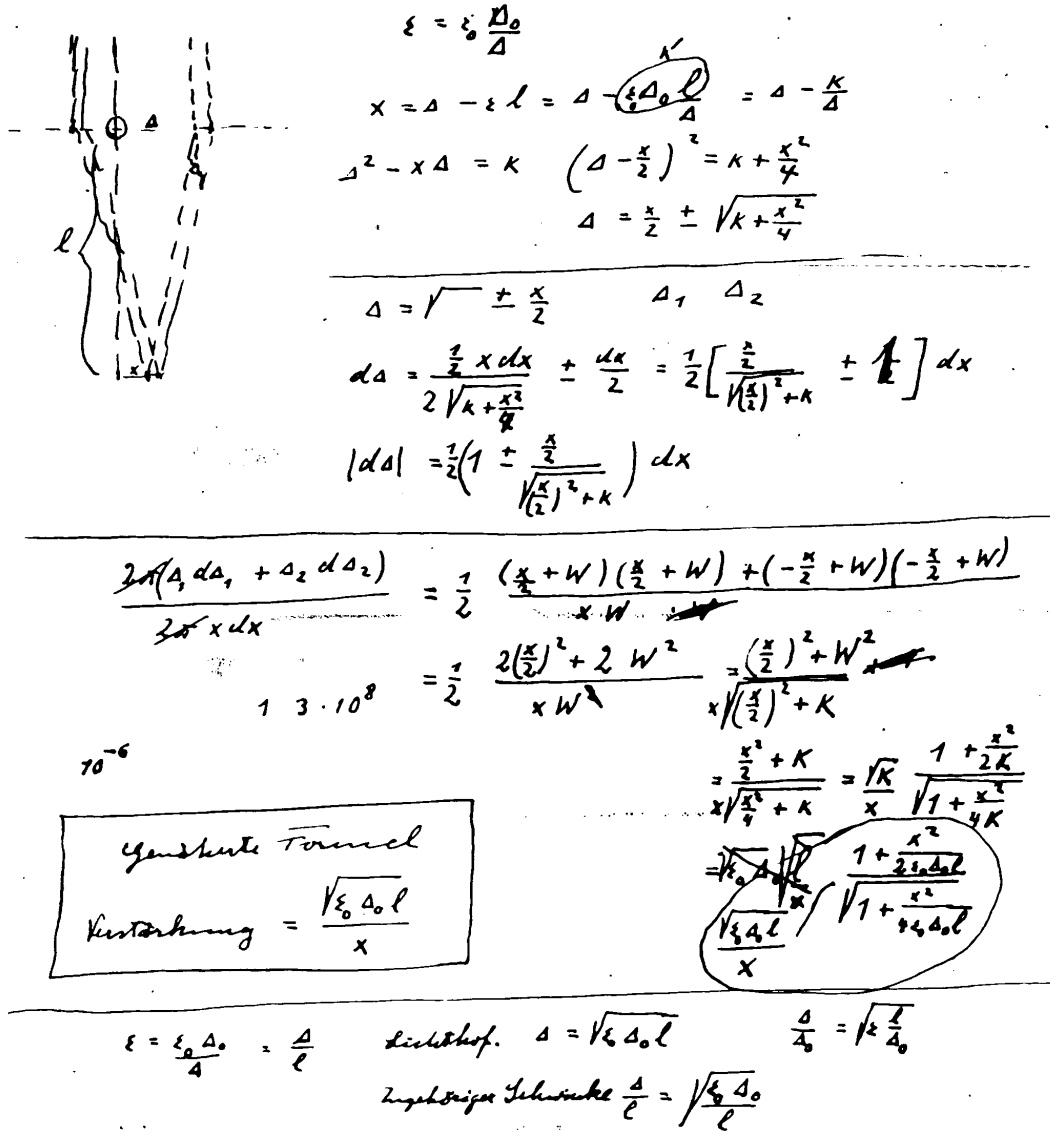 ε = ε₀ Δ₀/Δ
K
x = Δ − ε l = Δ − ε₀Δ₀ l/Δ = Δ − K/Δ
Δ
Δ² − xΔ = K (Δ − x/2)² = K + x²/4
Δ = x/2 ± √(K + x²/4)
l
x
Δ = √ ± x/2 Δ₁ Δ₂
dΔ = ½ x dx / 2√(K + x²/4) ± dx/2 = ½ [ x/2 / √((x/2)² + K) ± 1 ] dx
|dΔ| = ½ (1 ± x/2 / √((x/2)² + K)) dx
2π(Δ₁ dΔ₁ + Δ₂ dΔ₂) / 2π x dx = ½ (x/2 + W)(x/2 + W) + (−x/2 + W)(−x/2 + W) / x W
= ½ 2(x/2)² + 2 W² / x W = (x/2)² + W² / x√((x/2)² + K)
1 3 · 10⁸
10⁻⁶
= x²/2 + K / x√(x²/4 + K) = √K/x (1 + x²/2K) / √(1 + x²/4K)
= √(ε₀Δ₀l)/x (1 + x²/2ε₀Δ₀l) / √(1 + x²/4ε₀Δ₀l)
Formel
Verstärkung = √(ε₀ Δ₀ l) / x
ε = ε₀ Δ₀/Δ = Δ/l Lichthof. Δ = √(ε₀ Δ₀ l) Δ/Δ₀ = √(ε l/Δ₀)
Zugehöriger Δ/l = √(ε₀ Δ₀/l)